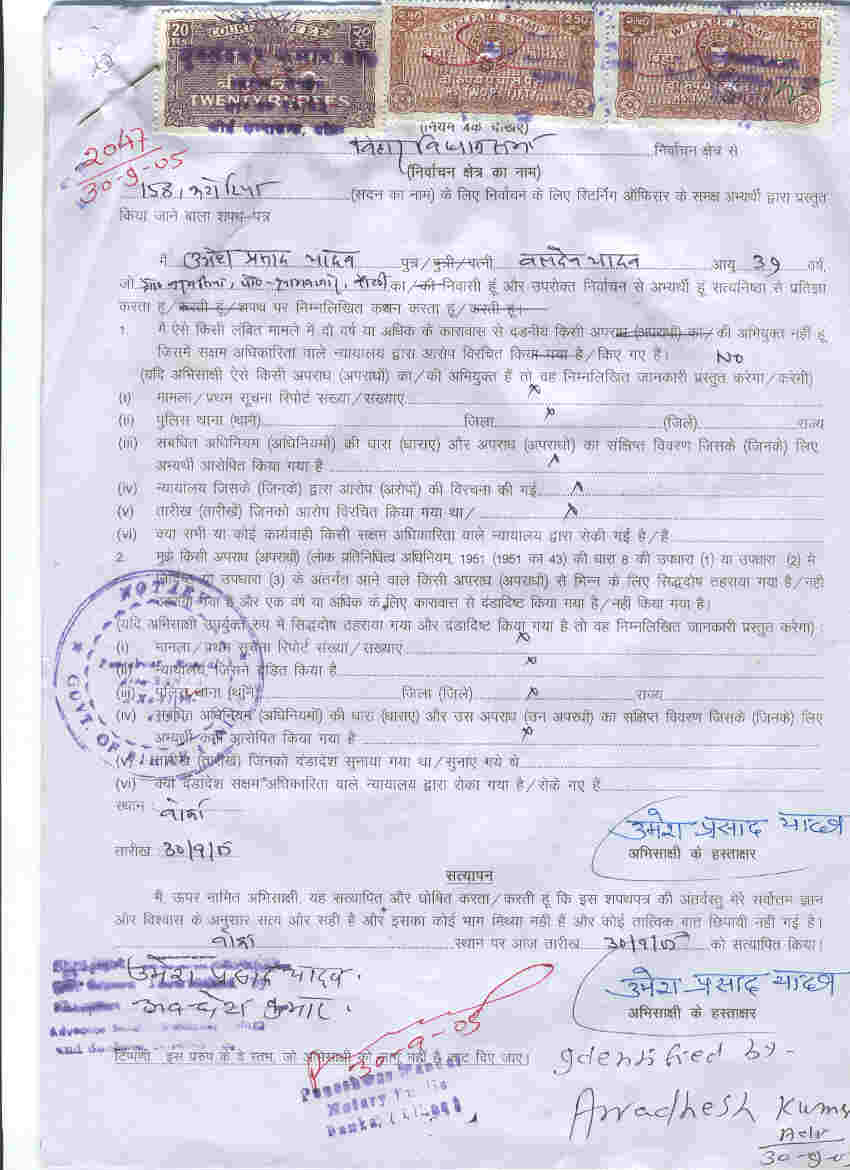 20 Rs COURT FEE २० रु
TWENTY RUPEES
2.50 WELFARE STAMP 2.50
2.50 WELFARE STAMP 2.50
RS TWO P. FIFTY
RS TWO P. FIFTY
2047
30-9-05
(नियम 4क देखिए)
बिहार विधान सभा निर्वाचन क्षेत्र से
(निर्वाचन क्षेत्र का नाम)
158, कटोरिया (सदन का नाम) के लिए निर्वाचन के लिए रिटर्निंग ऑफिसर के समक्ष अभ्यर्थी द्वारा प्रस्तुत
किया जाने बाला शपथ-पत्र
मैं उमेश प्रसाद यादव पुत्र/पुत्री/पत्नी बलदेव यादव आयु 39 वर्ष,
जो का/की निवासी हूं और उपरोक्त निर्वाचन से अभ्यर्थी हूं सत्यनिष्ठा से प्रतिज्ञा
करता हूं/करती हूं/शपथ पर निम्नलिखित कथन करता हूं/करती हूं।
1. मैं ऐसे किसी लंबित मामले में दो वर्ष या अधिक के कारावास से दंडनीय किसी अपराध (अपराधों) का/की अभियुक्त नहीं हूं
जिसमें सक्षम अधिकारिता वाले न्यायालय द्वारा आरोप विरचित किया गया है/किए गए हैं। No
(यदि अभिसाक्षी ऐसे किसी अपराध (अपराधों) का/की अभियुक्त है तो वह निम्नलिखित जानकारी प्रस्तुत करेगा/करेगी)
(i) मामला/प्रथम सूचना रिपोर्ट संख्या/संख्याएं x
(ii) पुलिस थाना (थाने) जिला x (जिले) राज्य
(iii) संबंधित अधिनियम (अधिनियमों) की धारा (धाराएं) और अपराध (अपराधों) का संक्षिप्त विवरण जिसके (जिनके) लिए
अभ्यर्थी आरोपित किया गया है
(iv) न्यायालय जिसके (जिनके) द्वारा आरोप (आरोपों) की विरचना की गई
(v) तारीख (तारीखें) जिनको आरोप विरचित किया गया था/
(vi) क्या सभी या कोई कार्यवाही किसी सक्षम अधिकारिता वाले न्यायालय द्वारा रोकी गई है/हैं
2. मुझे किसी अपराध (अपराधों) (लोक प्रतिनिधित्व अधिनियम, 1951 (1951 का 43) की धारा 8 की उपधारा (1) या उपधारा (2) में
निर्दिष्ट या उपधारा (3) के अंतर्गत आने वाले किसी अपराध (अपराधों) से भिन्न के लिए सिद्धदोष ठहराया गया है/नहीं
ठहराया गया है और एक वर्ष या अधिक के लिए कारावास से दंडादिष्ट किया गया है/नहीं किया गया है।
(यदि अभिसाक्षी उपर्युक्त रुप में सिद्धदोष ठहराया गया और दंडादिष्ट किया गया है तो वह निम्नलिखित जानकारी प्रस्तुत करेगा) :
(i) मामला/प्रथम सूचना रिपोर्ट संख्या/संख्याएं x
(ii) न्यायालय, जिसने दंडित किया है x
(iii) पुलिस थाना (थाने) जिला (जिले) x राज्य
(iv) संबंधित अधिनियम (अधिनियमों) की धारा (धाराएं) और उस अपराध (उन अपराधों) का संक्षिप्त विवरण जिसके (जिनके) लिए
अभ्यर्थी को आरोपित किया गया है x
(v) तारीख (तारीखें) जिनको दंडादेश सुनाया गया था/सुनाए गये थे
(vi) क्या दंडादेश सक्षम अधिकारिता वाले न्यायालय द्वारा रोका गया है/रोके गए हैं
NOTARY
GOVT. OF BIHAR
स्थान : बाँका
उमेश प्रसाद यादव
तारीख : 30/9/05
अभिसाक्षी के हस्ताक्षर
सत्यापन
मैं, ऊपर नामित अभिसाक्षी, यह सत्यापित और घोषित करता/करती हूं कि इस शपथपत्र की अंतर्वस्तु मेरे सर्वोत्तम ज्ञान
और विश्वास के अनुसार सत्य और सही है और इसका कोई भाग मिथ्या नहीं है और कोई तात्विक बात छिपायी नहीं गई है।
बाँका स्थान पर आज तारीख 30/9/05 को सत्यापित किया।
उमेश प्रसाद यादव
अवधेश कुमार
उमेश प्रसाद यादव
अभिसाक्षी के हस्ताक्षर
30-9-05
टिप्पणी इस प्ररुप के वे स्तंभ, जो अभिसाक्षी को लागू नहीं है, काट दिए जाएं।
Notary Public
Banka, (Bihar)
Identified by-
Awadhesh Kumar
Adv
30-9-0